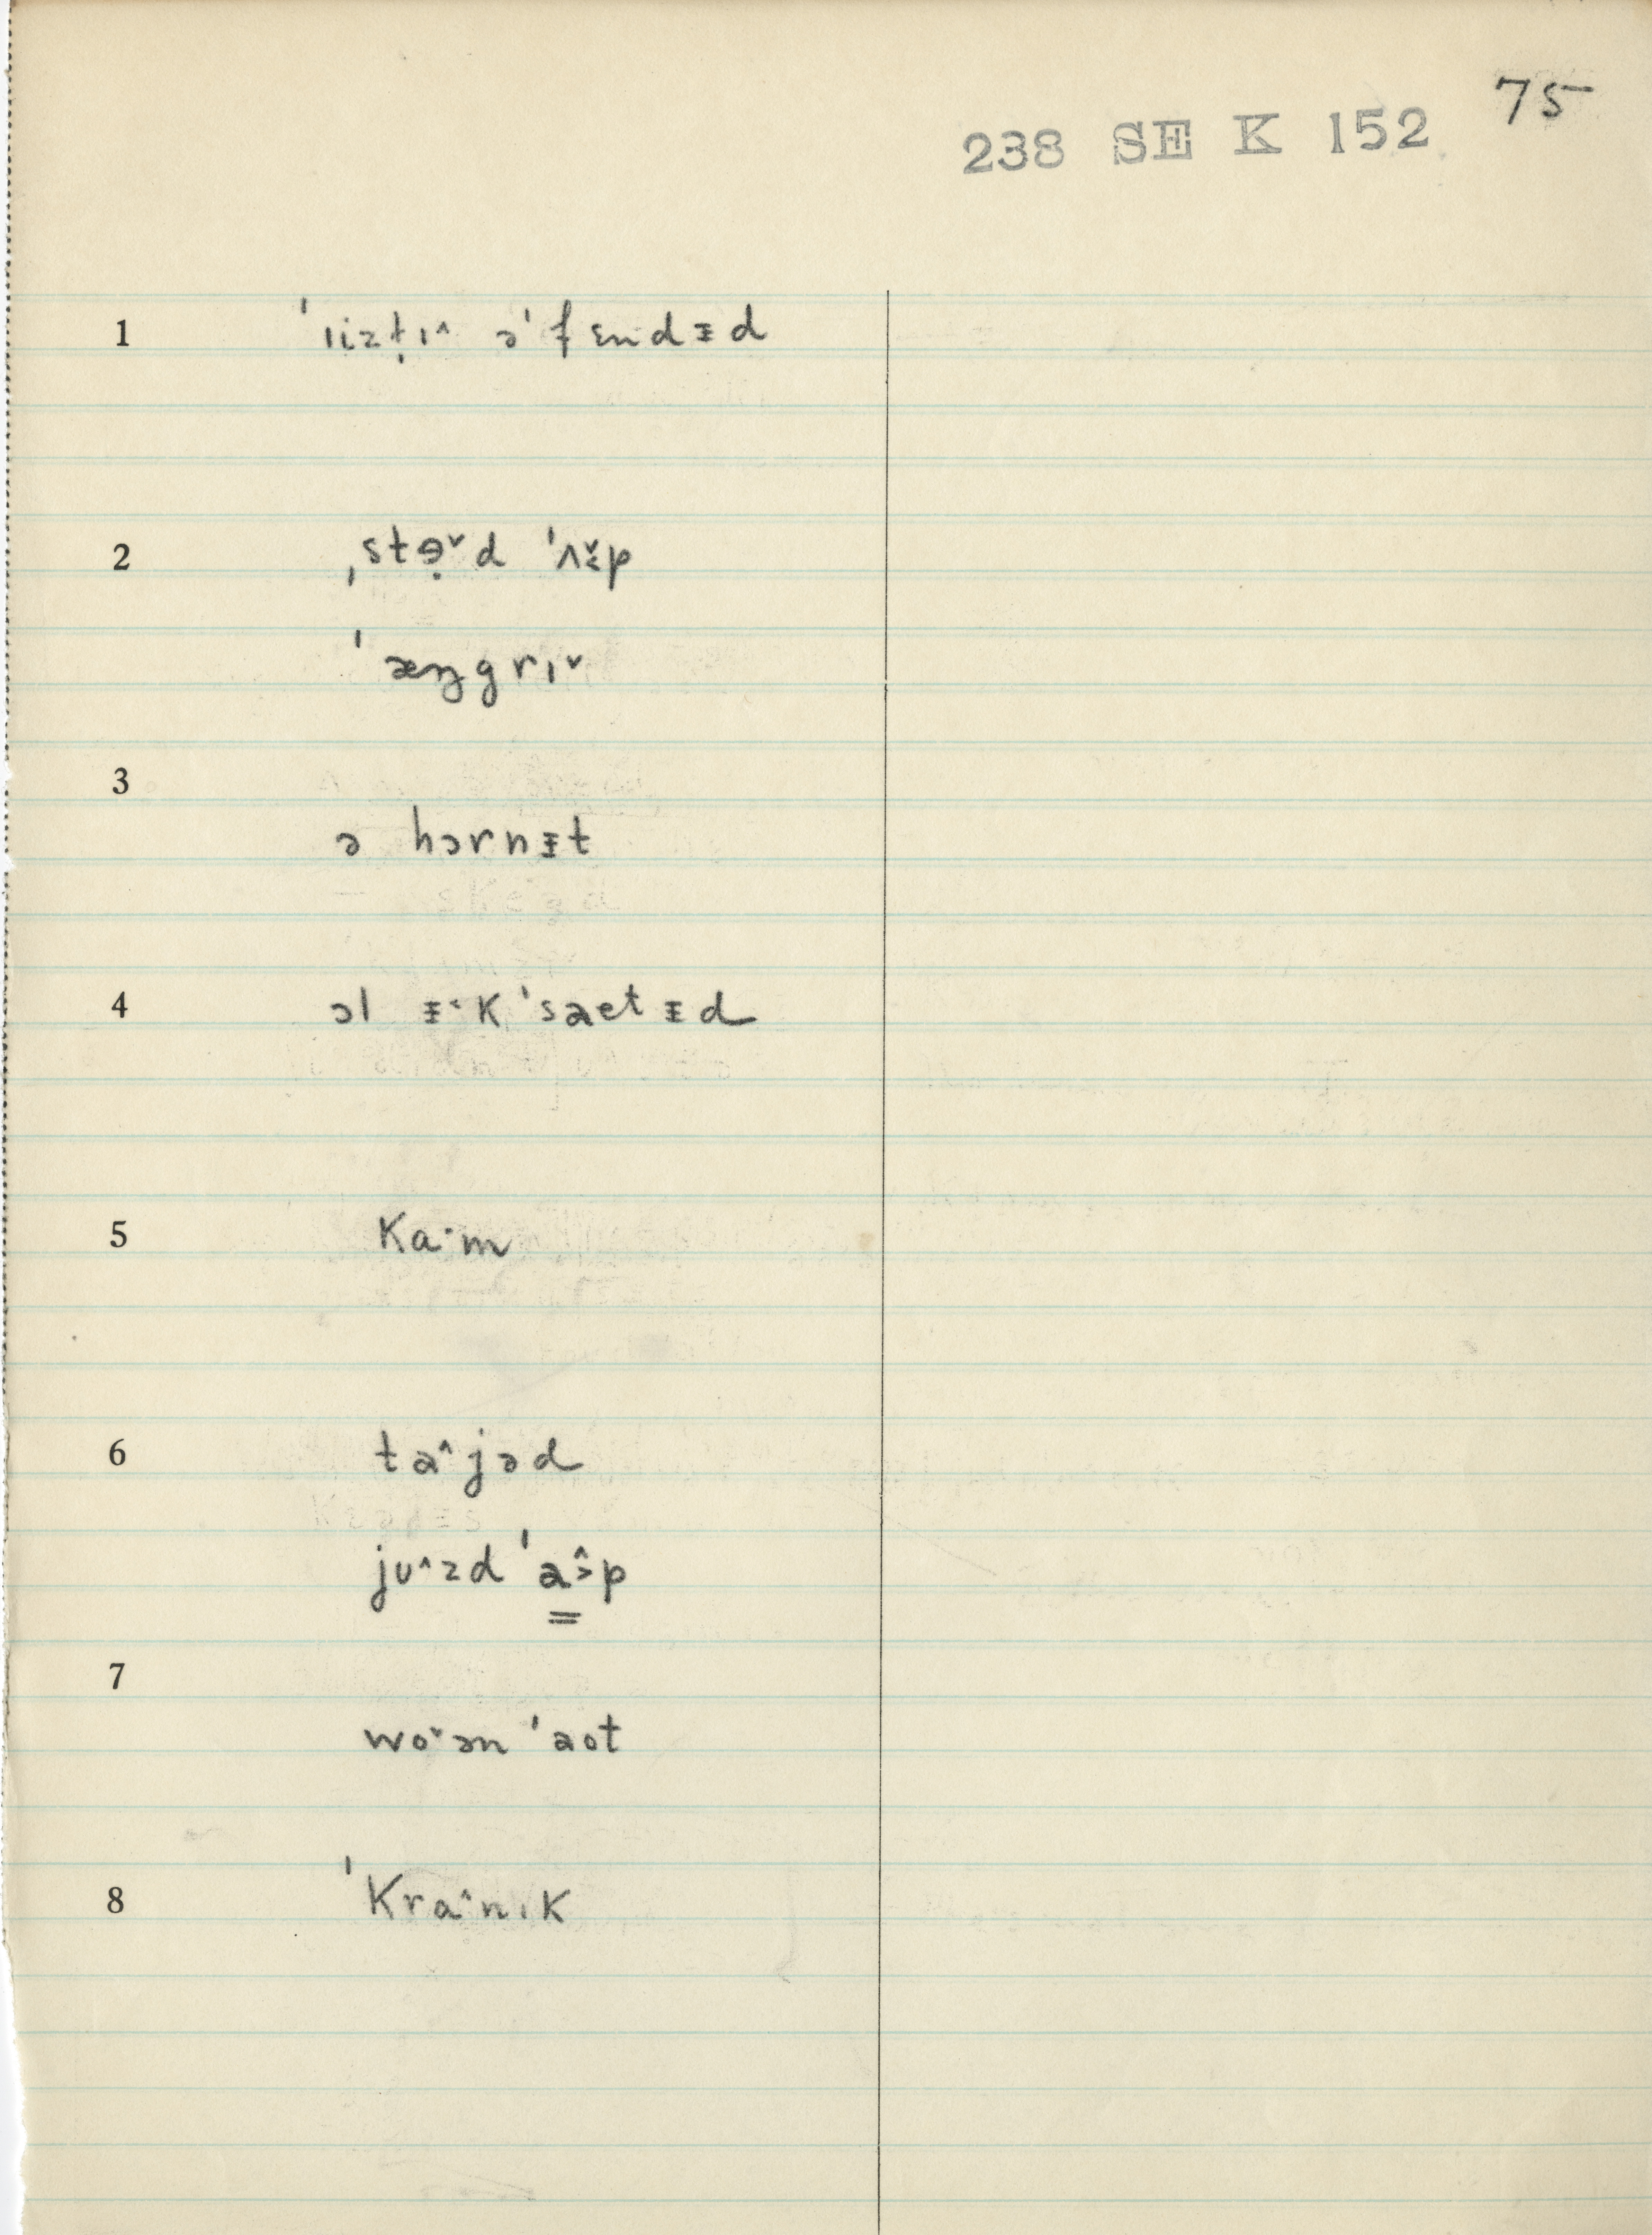 75
238 SE K 152
1 ˈɪizt̩ɪ^ əˈfɛndᵻd
2 ˌstɘ̣ˇd ˈʌɛ̌p
ˈæŋgrɪˇ
3
ə hɔrnᵻt
4 ɔl ᵻ˂kˈsaetᵻd
5 ka·m
6 ta^jəd
juˆzd ˈa̳˃̂p
7
woˇən ˈaot
8 ˈkraˆnɪk